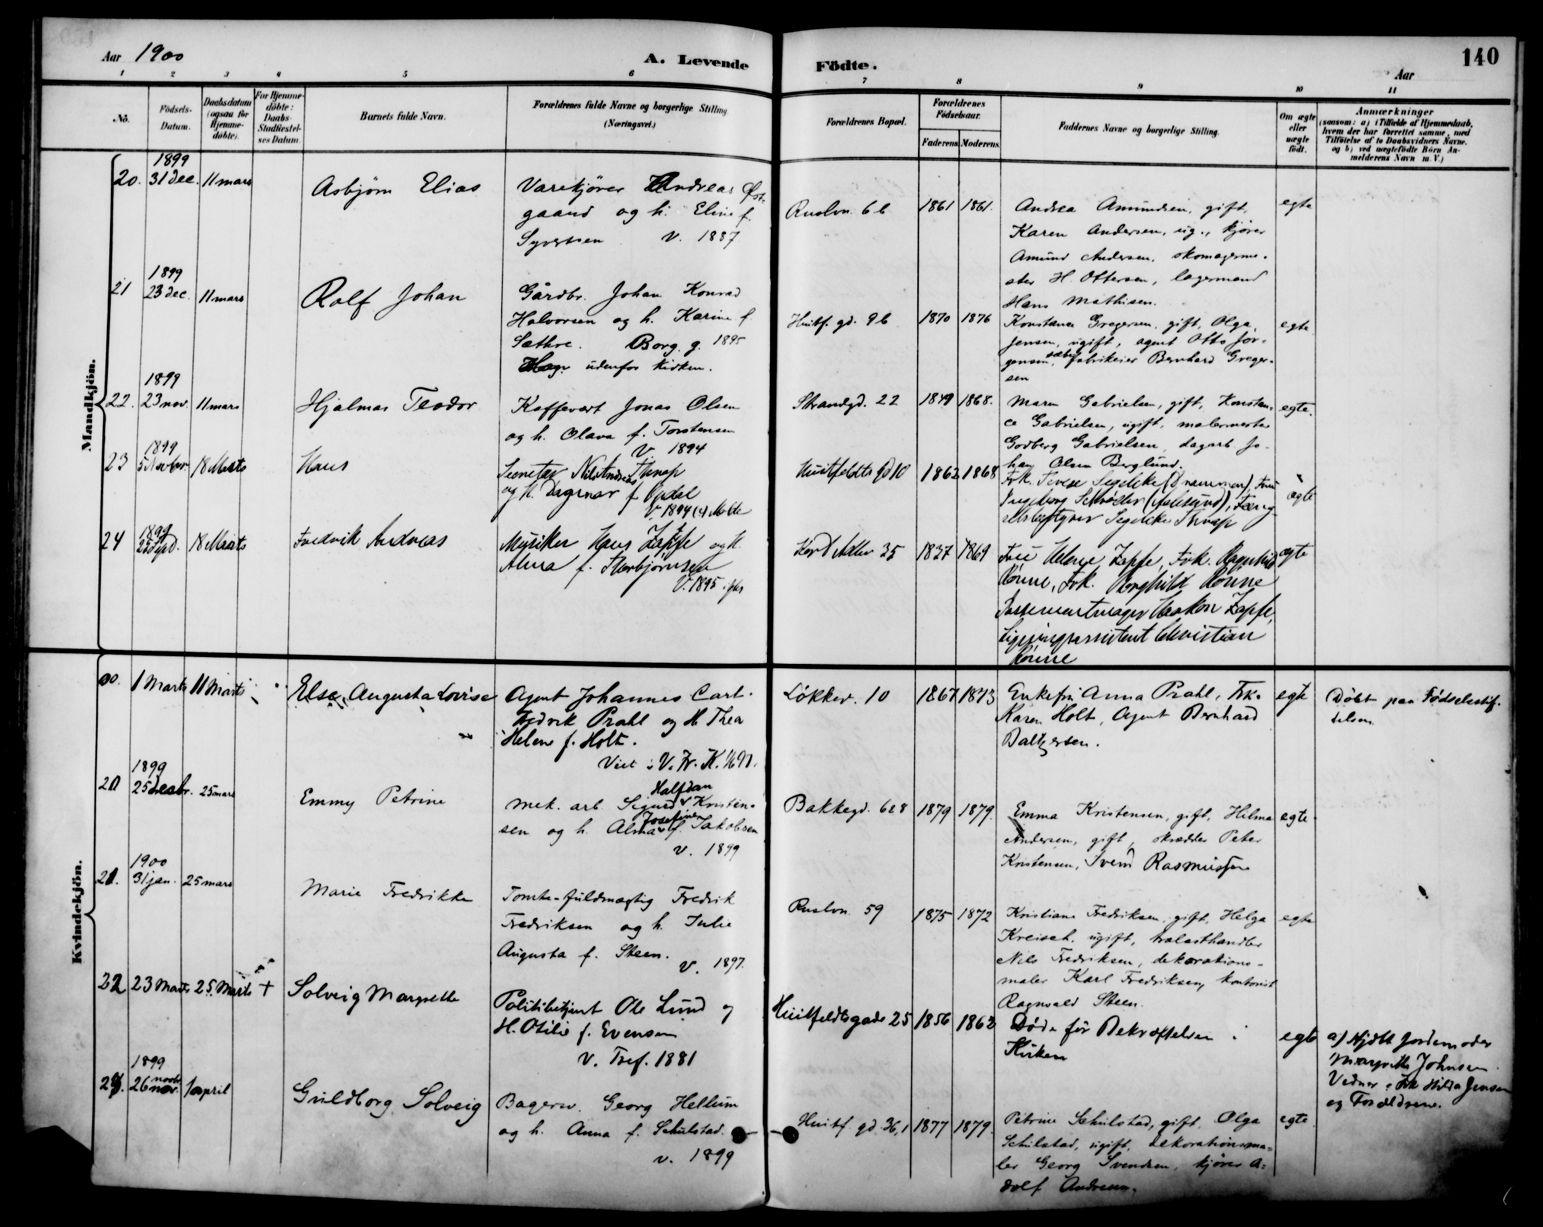 Aar 1900
A. Levende Fødte.
Aar
140
1 2 3 4 5 6 7 8 9 10 11
No.
Fødsels-Datum.
Daabsdatum (ogsaa for Hjemme-døbte).
For Hjemme-døbte: Daabs-Stadfæstel-ses Datum.
Barnets fulde Navn.
Forældrenes fulde Navne og borgerlige Stilling (Næringsvei.)
Forældrenes Bopæl.
Forældrenes Fødselsaar.
Faderens. Moderens.
Faddernes Navne og borgerlige Stilling.
Om ægte eller uægte født.
Anmærkninger
(saasom: a) i Tilfælde af Hjemmedaab, hvem der har forrettet samme, med Tilføielse af to Daabsvidners Navne. og b) ved uægtefødte Børn An-melderens Navn m. V.)
Mandkjön.
20. 1899 31 dec. 11 mars
Asbjørn Elias
Varekjører Andreas Øst-
gaard og h. Eline f.
Syvertsen V. 1887
Ruslvn. 6 b 1861 1861.
Andrea Amundsen, gift,
Karen Andersen, ug., kjører
Amund Andersen, skomagerme-
ster H. Ottersen, lagermand
Hans Mathisen.
egte
21 1899 23 dec. 11 mars
Rolf Johan
Gårdbr. Johan Konrad
Halvorsen og h. Karine f.
Sæthre. Borg. g. 1895
udenfor kirken.
Huitf. gd. 9 b 1870 1876
Konstance Gregersen, gift, Olga
Jensen, ugift, agent Otto Jør-
gensen, fabrikeier Bernhard Greger-
sen
egte
22. 1899 23 nov. 11 mars
Hjalmar Teodor
Kaffevert Jonas Olsen
og h. Olava f. Torstensen
V. 1894
Strandgd. 22 1849 1868.
Maren Gabrielsen, gift, Konstan-
ce Gabrielsen, ugift, malermester
Godberg Gabrielsen, dagarb. Jo-
han Olsen Berglund.
egte.
23 1899 18 Marts
Hans
og h. Dagmar f. Opdal
V. 1894 i Molde
Huitfeldts gd 10 1862 1868
ægte
24 1899 18 Marts
Fredrik Andreas
Musiker Hans Zapfe og h.
Alma f. Thorbjørnsen
V. 1895
Kord Adler 35 1837 1869
Fru Helene Zapfe, Frk. Ragnhild
Rønne, Frk. Borghild Rønne
Haakon Zapfe,
Christian
Rønne
ægte
Kvindekjön.
20. 1 Marts 11 Marts
Else Augusta Lovise
Agent Johannes Carl
Fredrik Prahl og H. Thea
Helene f. Holt.
Viet i V. Fr. K.
Løkkev. 10 1867 1873
Enkefru Anna Prahl, Frk.
Karen Holt, Agent Bernhard
Baltzersen.
egte
Døbt paa Fødselsstif-
telsen
20 1899 25 decbr. 25 mars
Emmy Petrine
mek. arb. Sigurd Halfdan Kristen-
sen og h. Alma Josefine f. Jakobsen
V. 1899
Bakkegd. 6 1879 1879.
Emma Kristensen, gift, Hilma
Andersen, gift, skrædder Peter
Kristensen, Svend Rasmussen
egte
21. 1900 31 jan. 25 mars
Marie Fredrikke
Tomte-fuldmægtig Fredrik
Fredriksen og h. Julie
Augusta f. Steen.
V. 1897.
Ruslvn. 59 1875 1872
Kristiane Fredriksen, gift, Helga
Kreisch. ugift, trælasthandler
Nils Fredriksen, dekorations-
maler Karl Fredriksen, kontorist
Ragnvald Steen.
egte
22 23 Marts 25 Marts +
Solveig Margrethe
Politibetjent Ole Lund og
H. Otilie f. Evensen
V. Tref. 1881
Huitfeldtsgade 25 1856 1862
Døde før Bekræftelsen i
Kirken
egte
a) Hjdbt Jordemoder
Margrethe Johnsen
Vidner: Frk Hilda Jensen
og Forældrene.
1899 26 nov. 1 april
Guldborg Solveig
Bagersv. Georg Hellum
og h. Anna f. Schulstad.
V. 1899
Huitf. gd. 36, 1 1877 1879.
Petrine Schulstad, gift, Olga
Schulstad, ugift, dekorationsma-
ler Georg Svendsen, kjører A-
dolf Andresen.
egte